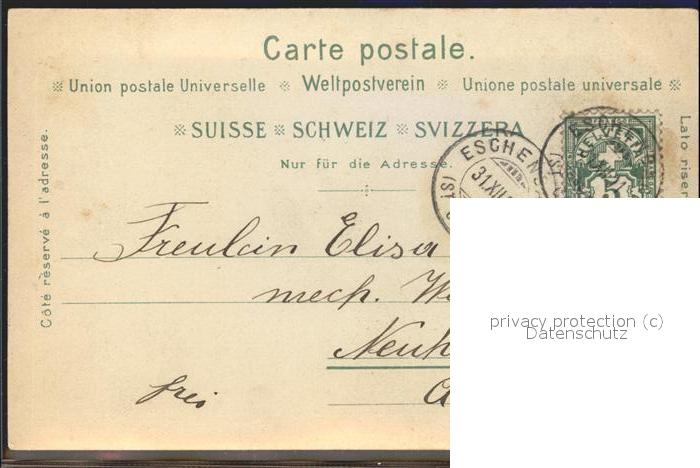 Carte postale.
Union postale Universelle Weltpostverein Unione postale universale
SUISSE SCHWEIZ SVIZZERA
Nur für die Adresse.
Côté réservé à l'adresse.
Lato riser
ESCHEN
31.XII
HELVETIA
5
Freulein Elisa
mech. We
Neuh
frei
privacy protection (c)
Datenschutz